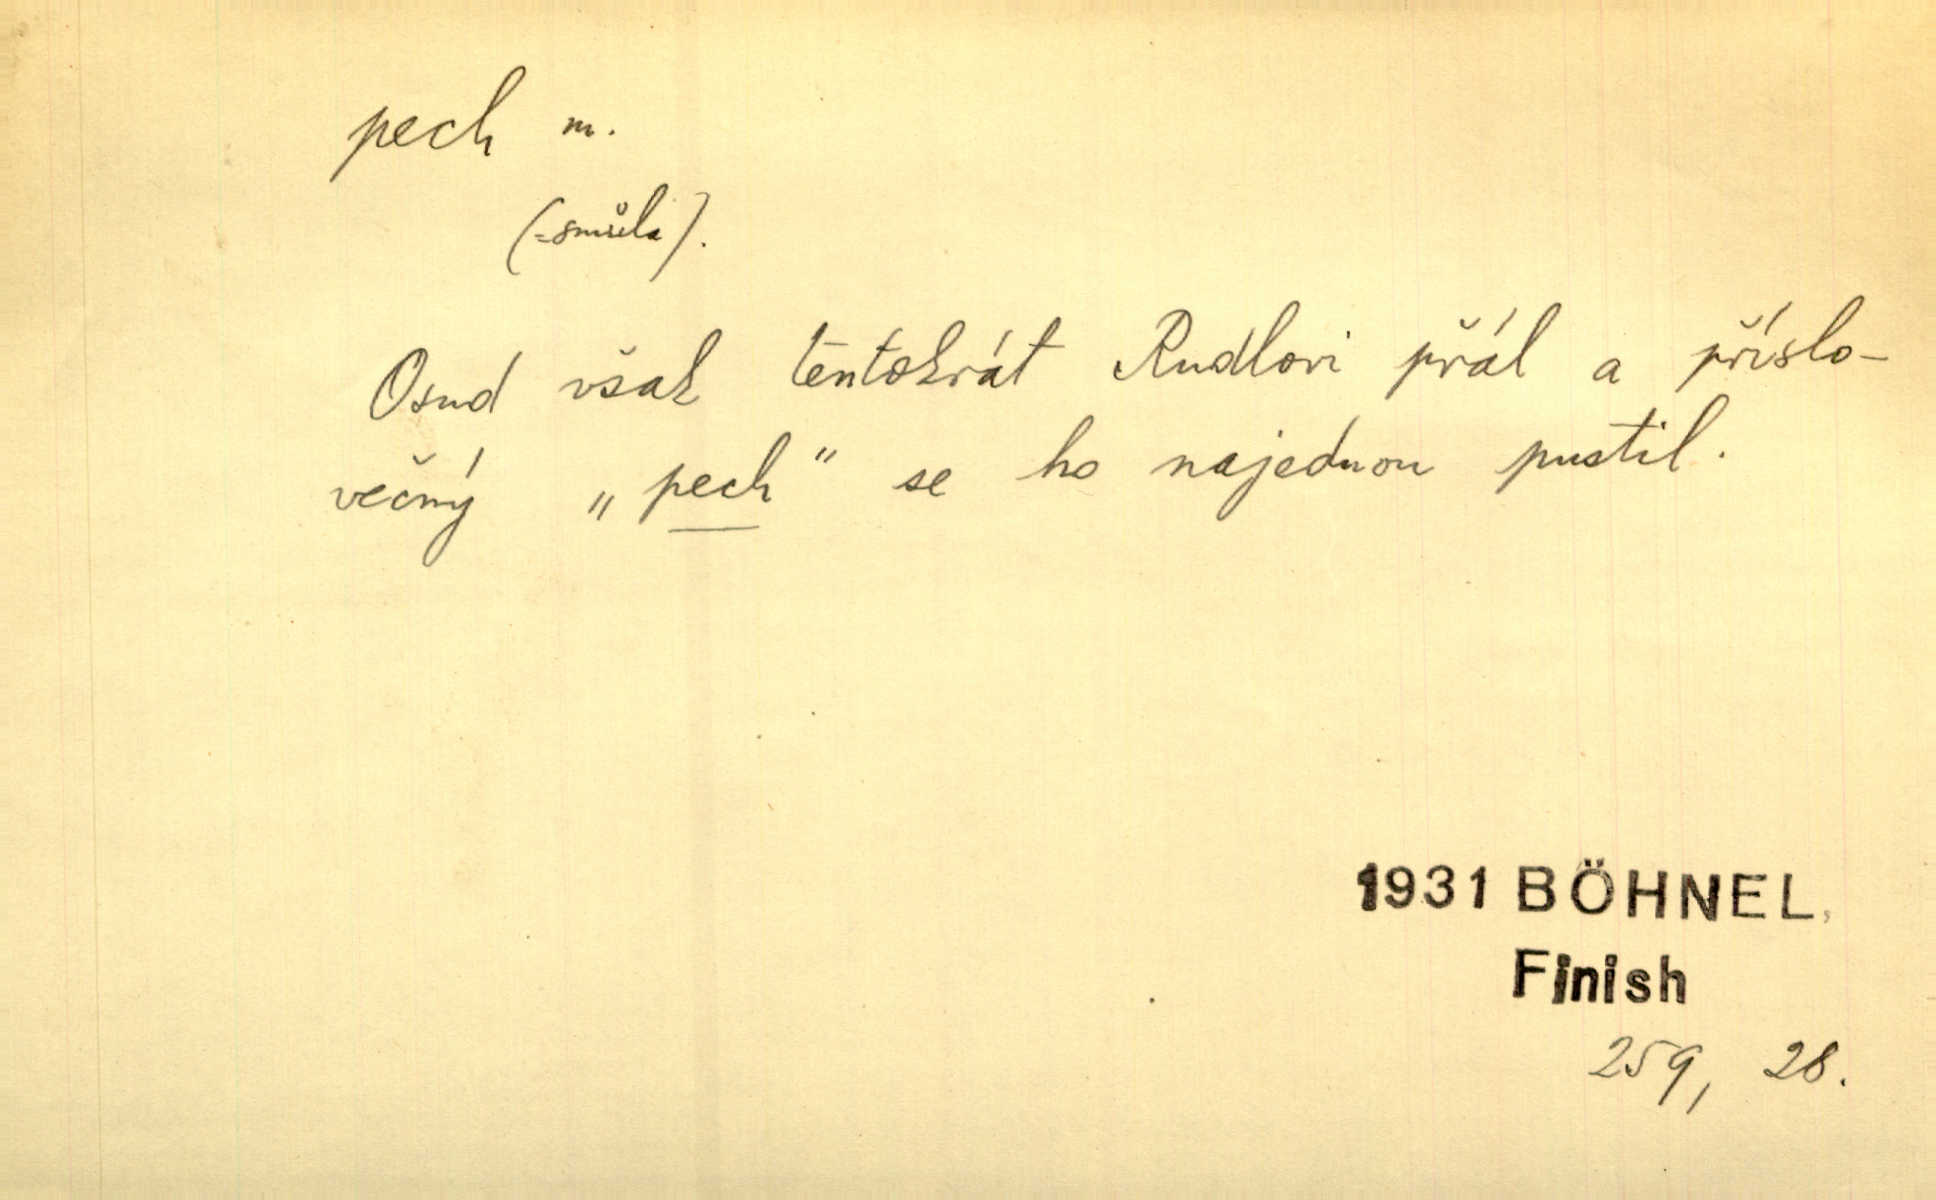 pech m.
(=smůla).
Osud však tentokrát Rudlovi přál a příslo-
večný „pech“ se ho najednou pustil.
1931 BÖHNEL,
Finish
259, 28.